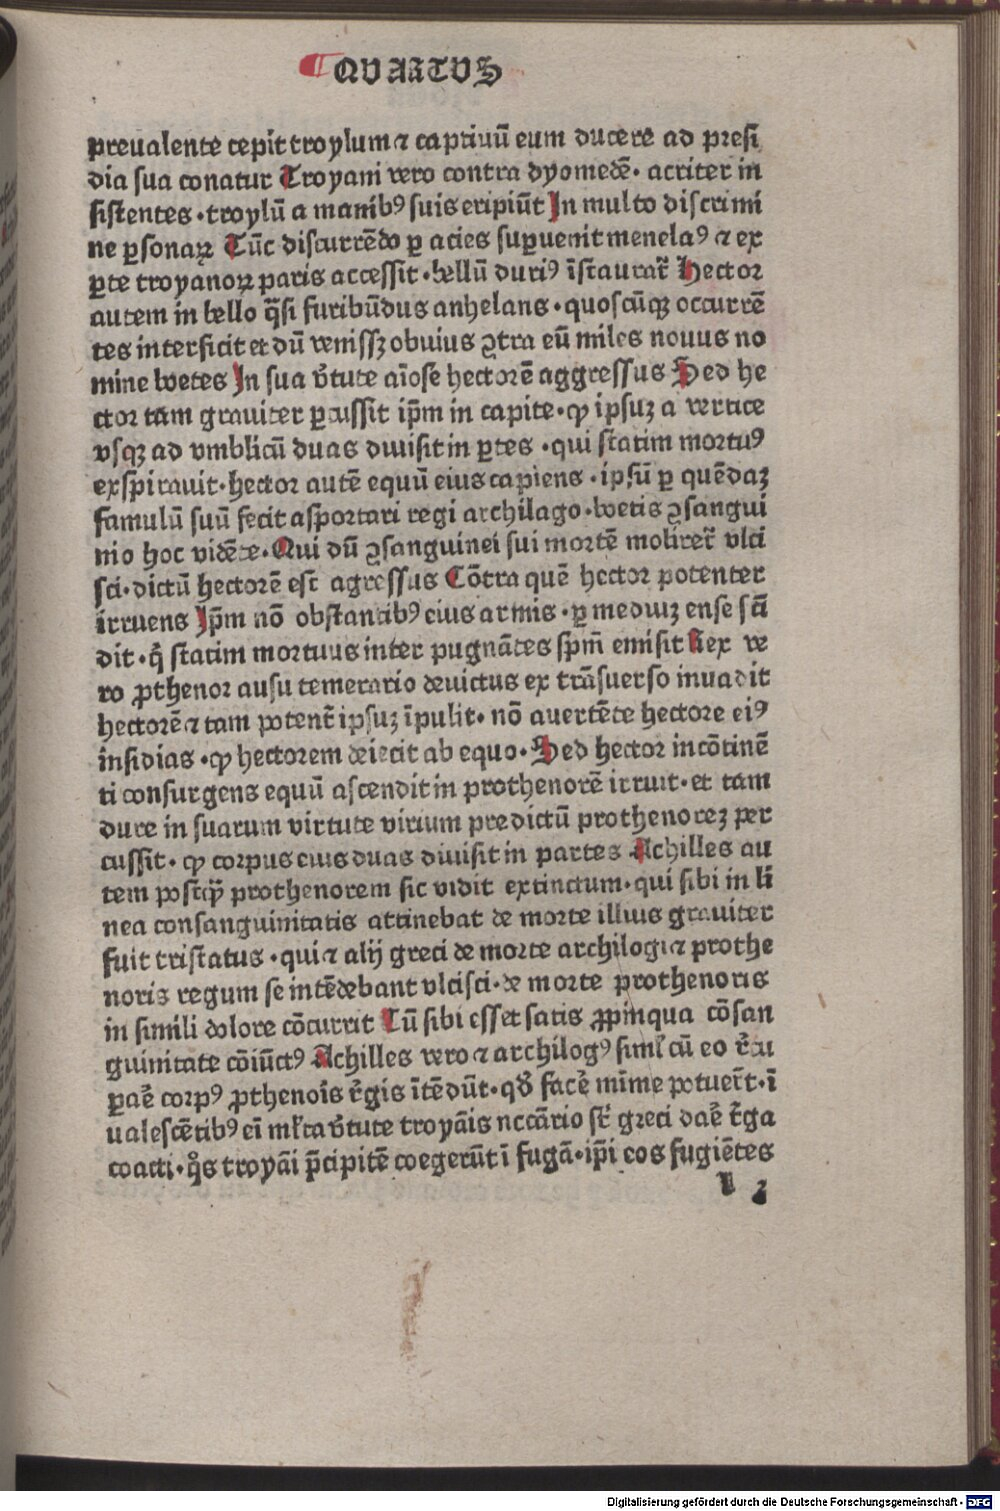 ¶ QVARTVS
preualente cepit troylum ⁊ captiuū eum ducere ad presi
dia sua conatur Troyani vero contra dyomedē· acriter in
sistentes ·troylū a manibꝰ suis eripiūt In multo discrimi
ne ꝑsonaꝝ Tūc discurrēdo ꝑ acies suꝑuenit menelaꝰ ⁊ ex
ꝑte troyanoꝝ paris accessit ·bellū duriꝰ īstaurat̄ Hector
autem in bello q̄si furibūdus anhelans ·quoscūqꝫ occurrē
tes interficit et dū venissꝫ obuius ꝯtra eū miles nouus no
mine boetes In sua v̄tute aīose hectorē aggressus Sed he
ctor tam grauiter ꝑcussit ip̄m in capite· ꝙ ipsuꝫ a vertice
vsqꝫ ad vmblicū duas diuisit in ꝑtes ·qui statim mortuꝰ
exspirauit·hector autē equū eius capiens ·ipsū ꝑ quēdaꝫ
famulū suū fecit asportari regi archilago ·boetis ꝯsangui
nio hoc vidēte· Qui dū ꝯsanguinei sui mortē moliret̄ vlci
sci·dictū hectorē est agressus Cōtra quē hector potenter
irruens Ip̄m nō obstantibꝰ eius armis · ꝑ mediuꝫ ense scī
dit ·q̇ statim mortuus inter pugnātes sp̄m emisit Rex ve
ro ꝓthenor ausu temerario deuictus ex trāsuerso inuadit
hectorē ⁊ tam potent̄ ipsuꝫ īpulit· nō auertēte hectore eiꝰ
insidias ·ꝙ hectorem deiecit ab equo· Sed hector incōtinē
ti consurgens equū ascendit in prothenorē irruit· et tam
dure in suarum virtute virium predictū prothenoreꝫ per
cussit· ꝙ corpus eius duas diuisit in partes Achilles au
tem postq̄ꝫ prothenorem sic vidit extinctum·qui sibi in li
nea consanguinitatis attinebat de morte illius grauiter
fuit tristatus ·qui ⁊ alij greci de morte archilogi ⁊ prothe
noris regum se intēdebant vlcisci·de morte prothenoris
in simili dolore cōcurrit Cū sibi esset satis ꝓpinqua cōsan
guinitate cōiūctꝰ Achilles vero ⁊ archilogꝰ siml̄ cū eo r̄cu
ꝑae᷒ corpꝰ ꝓthenoīs r̄gis ītēdūt·qd̄ face᷒ mīme potuer̄t·ī
ualescētibꝰ eī ml̄ta v̄tute troyāis nccārio st̄ greci dae᷒ t̄ga
coacti·q̊s troyāi p̄cipitē coegerūt ī fugā·ip̄i eos fugiētes
l 2
Digitalisierung gefördert durch die Deutsche Forschungsgemeinschaft - DFG